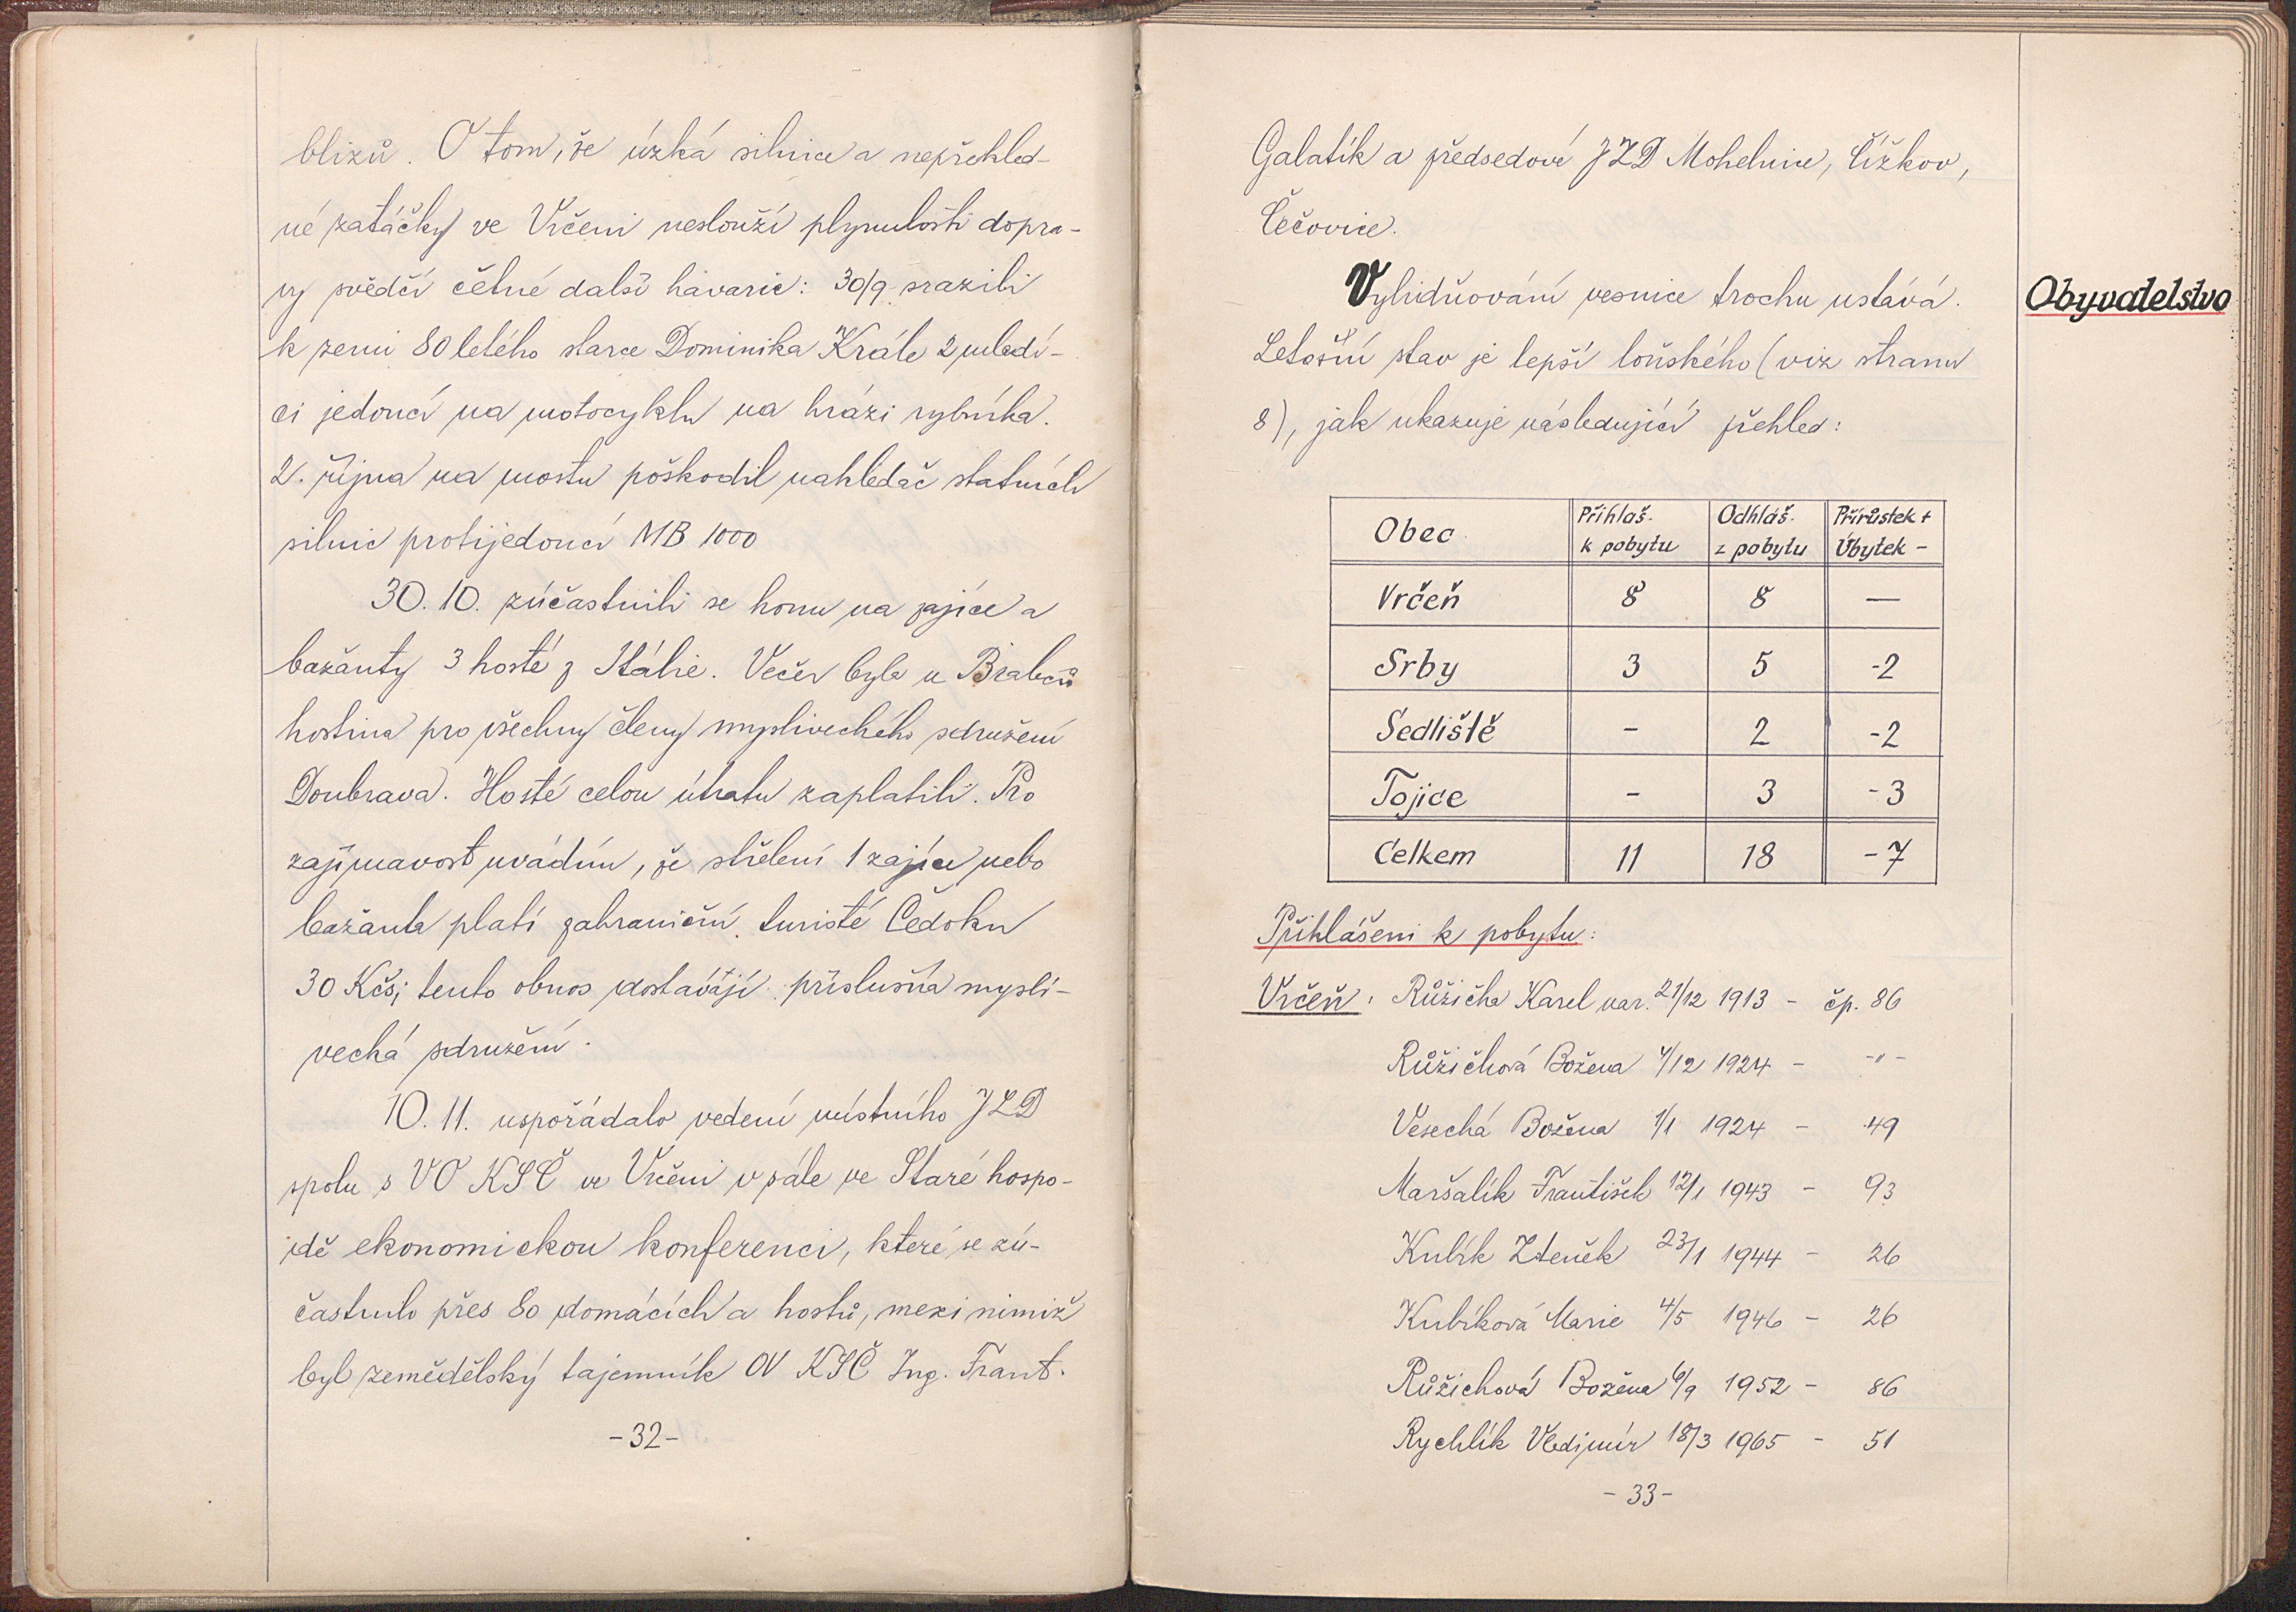 blizů. O tom, že úzká silnice a nepřehled-
né zatáčky ve Vrčeni neslouží plynulosti dopra-
vy svědčí četné další havarie: 30/9 srazili
k zemi 80 letého starce Dominika Krále 2 mladí-
ci jedoucí na motocyklu na hrázi rybníka.
2. října na mostu poškodil nakladač statních
silnic protijedoucí MB 1000
30. 10. zúčastnili se honu na zajíce a
bažanty 3 hosté z Itálie. Večer byla u Brabců
hostina pro všechny členy mysliveckého sdružení
Doubrava. Hosté celou útratu zaplatili. Pro
zajímavost uvádím, že střelení 1 zajíce nebo
bažanta platí zahraniční turisté Čedoku
30 Kčs; tento obnos dostávají příslušná mysli-
vecká sdružení.
10. 11. uspořádalo vedení místního JZD
spolu s VO KSČ ve Vrčeni v sále ve Staré hospo-
dě ekonomickou konferenci, které se zú-
častnilo přes 80 domácích a hostů, mezi nimiž
byl zemědělský tajemník OV KSČ Ing. Frant.
-32-
Galatík a předsedové JZD Mohelnice, Čížkov,
Čečovice.
Vylidňování vesnice trochu ustává.
Obyvatelstvo
Letošní stav je lepší loňského (viz stranu
8), jak ukazuje následující přehled:
Obec Přihláš. k pobytu Odhláš. z pobytu Přírůstek + Úbytek -
Vrčeň 8 8 —
Srby 3 5 -2
Sedliště - 2 -2
Tojice - 3 -3
Celkem 11 18 -7
Přihlášeni k pobytu:
Vrčeň: Růžička Karel nar. 21/12 1913 - čp. 86
Růžičková Božena 4/12 1924 - -"-
Vesecká Božena 1/1 1924 - 49
Maršalík František 12/1 1943 - 93
Kubík Zdeněk 23/1 1944 - 26
Kubíková Marie 4/5 1946 - 26
Růžičková Božena 6/9 1952 - 86
Rychlík Vladimír 18/3 1965 - 51
-33-